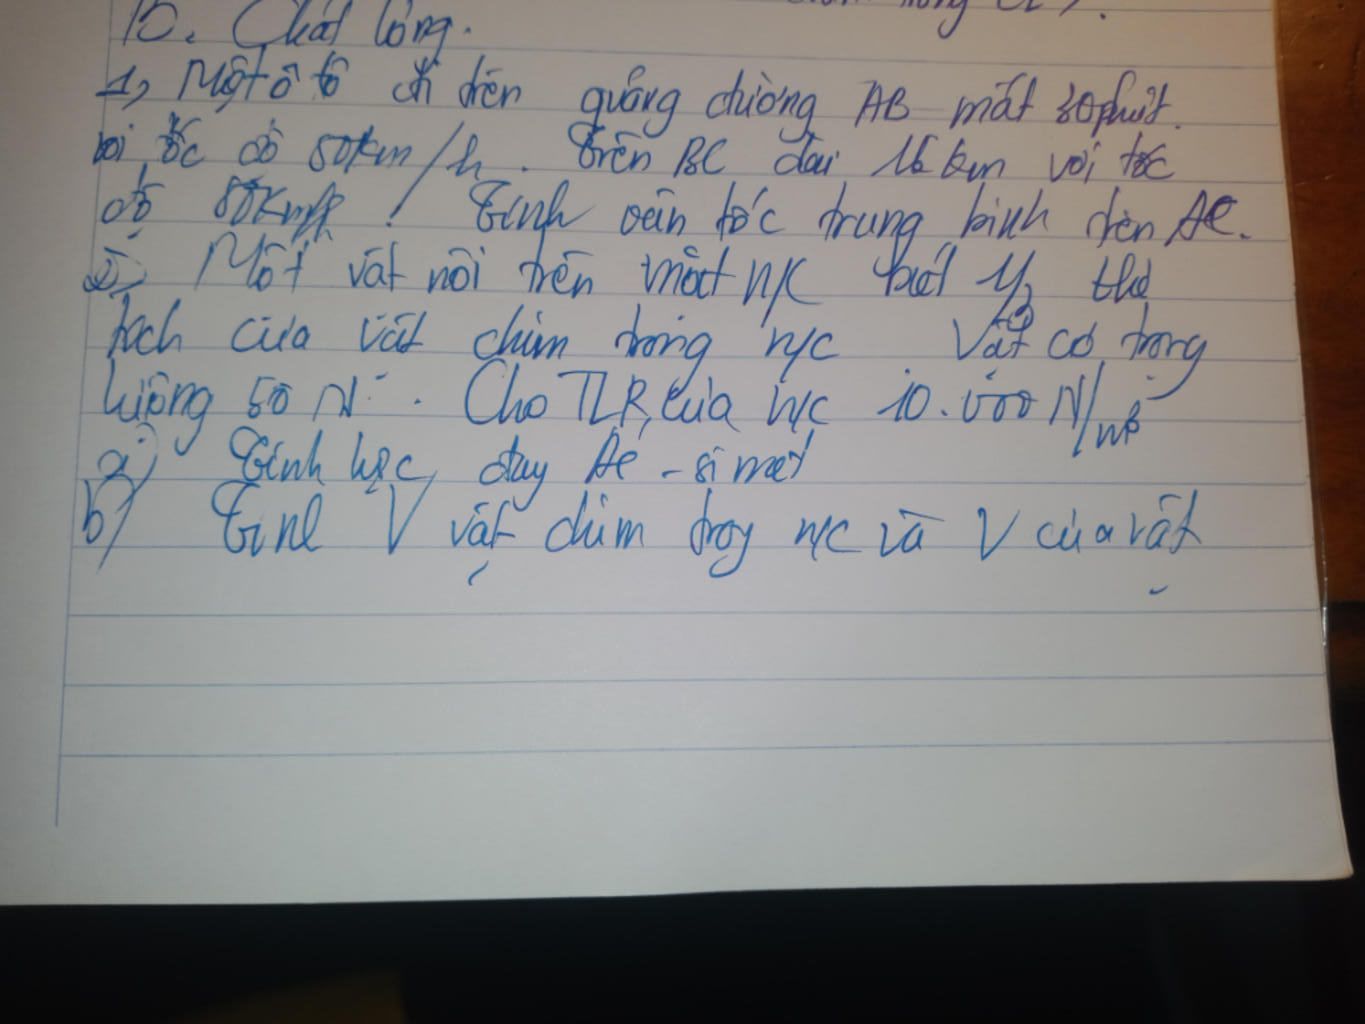 D. Chất lỏng.
1, Một ô tô đi trên quãng đường AB mất 30 phút.
với tốc độ 50km/h. Trên BC dài 16 km với tốc
độ 80km/h! Tính vận tốc trung bình trên AC.
2) Một vật nổi trên mặt n/c biết 1/2 thể
tích của vật chìm trong n/c Vật có trọng
lượng 50 N. Cho TLR của n/c 10.000 N/m³
a) Tính lực đẩy Ác-si mét
b) Tính V vật chìm trog n/c và V của vật